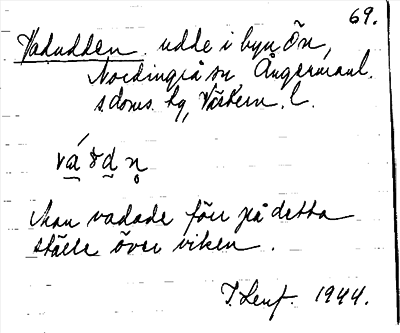 69.
Vadudden. udde i byn Ön,
Nordingrå sn Ångermanl.
s doms. hg, Västern. l.
Man vadade förr på detta
ställe över viken.
1944.